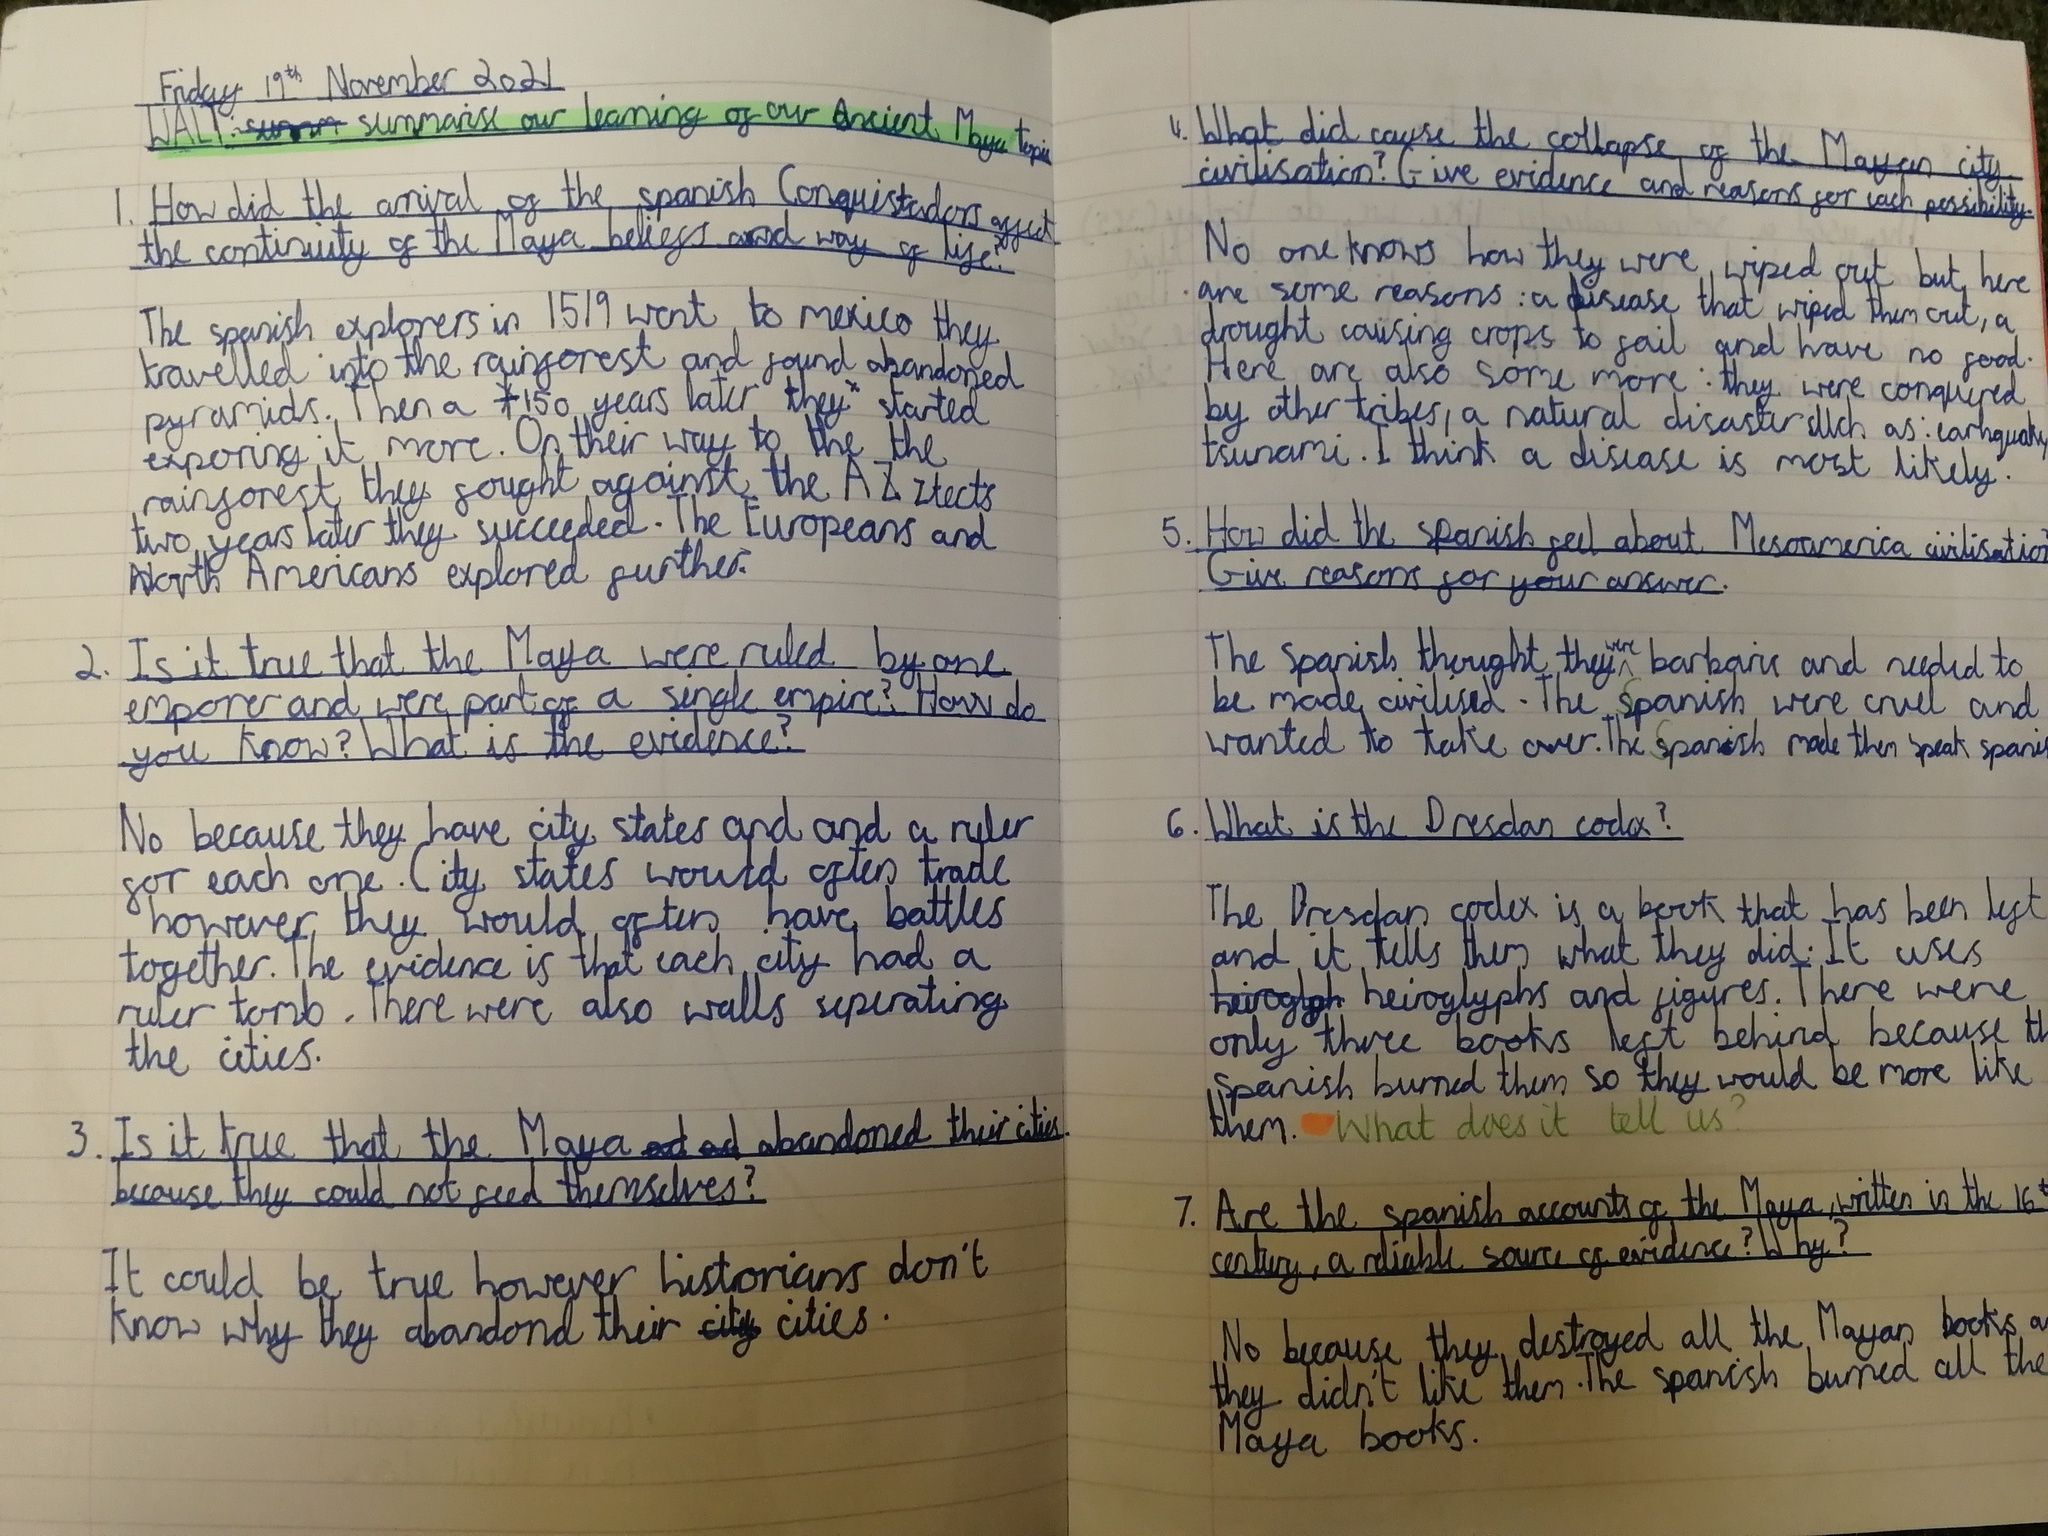 Friday 19th November 2021
WALT: summ summarise our learning of our Ancient Maya topic
1. How did the arrival of the spanish Conquistadors affect
the continuity of the Maya beliefs and way of life?
The spanish explorers in 1519 went to mexico they
travelled into the rainforest and found abandoned
pyramids. Then a 150 years later "they" started
exporing it more. On their way to the the
rainforest they fought against the AZ ztects
two years later they succeeded. The Europeans and
North Americans explored further.
2. Is it true that the Maya were ruled by one
emporer and were part of a single empire? How do
you know? What is the evidence?
No because they have city states and and a ruler
for each one. City states would often trade
however they would often have battles
together. The evidence is that each city had a
ruler tomb. There were also walls seperating
the cities.
3. Is it true that the Maya ad ad abandoned their cities
because they could not feed themselves?
It could be true however historians don't
know why they abandond their city cities.
4. What did cause the collapse of the Mayan city
civilisation? Give evidence and reasons for each possibility.
No one knows how they were wiped out but here
are some reasons: a disease that wiped them out, a
drought causing crops to fail and have no food.
Here are also some more: they were conquered
by other tribes, a natural disaster such as: earhquake
tsunami. I think a disease is most likely.
5. How did the spanish feel about Mesoamerica civilisation?
Give reasons for your answer.
The spanish thought they were barbaric and needed to
be made civilised. The Spanish were cruel and
wanted to take over. The Spanish made them speak spanis
6. What is the Dresdan codex?
The Dresdan codex is a book that has been left
and it tells them what they did. It uses
heiroglph heiroglyphs and figures. There were
only three books left behind because th
spanish burned them so they would be more like
them. What does it tell us?
7. Are the spanish accounts of the Maya, written in the 16t
century, a reliable source of evidence? Why?
No because they destroyed all the Mayan books a
they didn't like them. The spanish burned all the
Maya books.